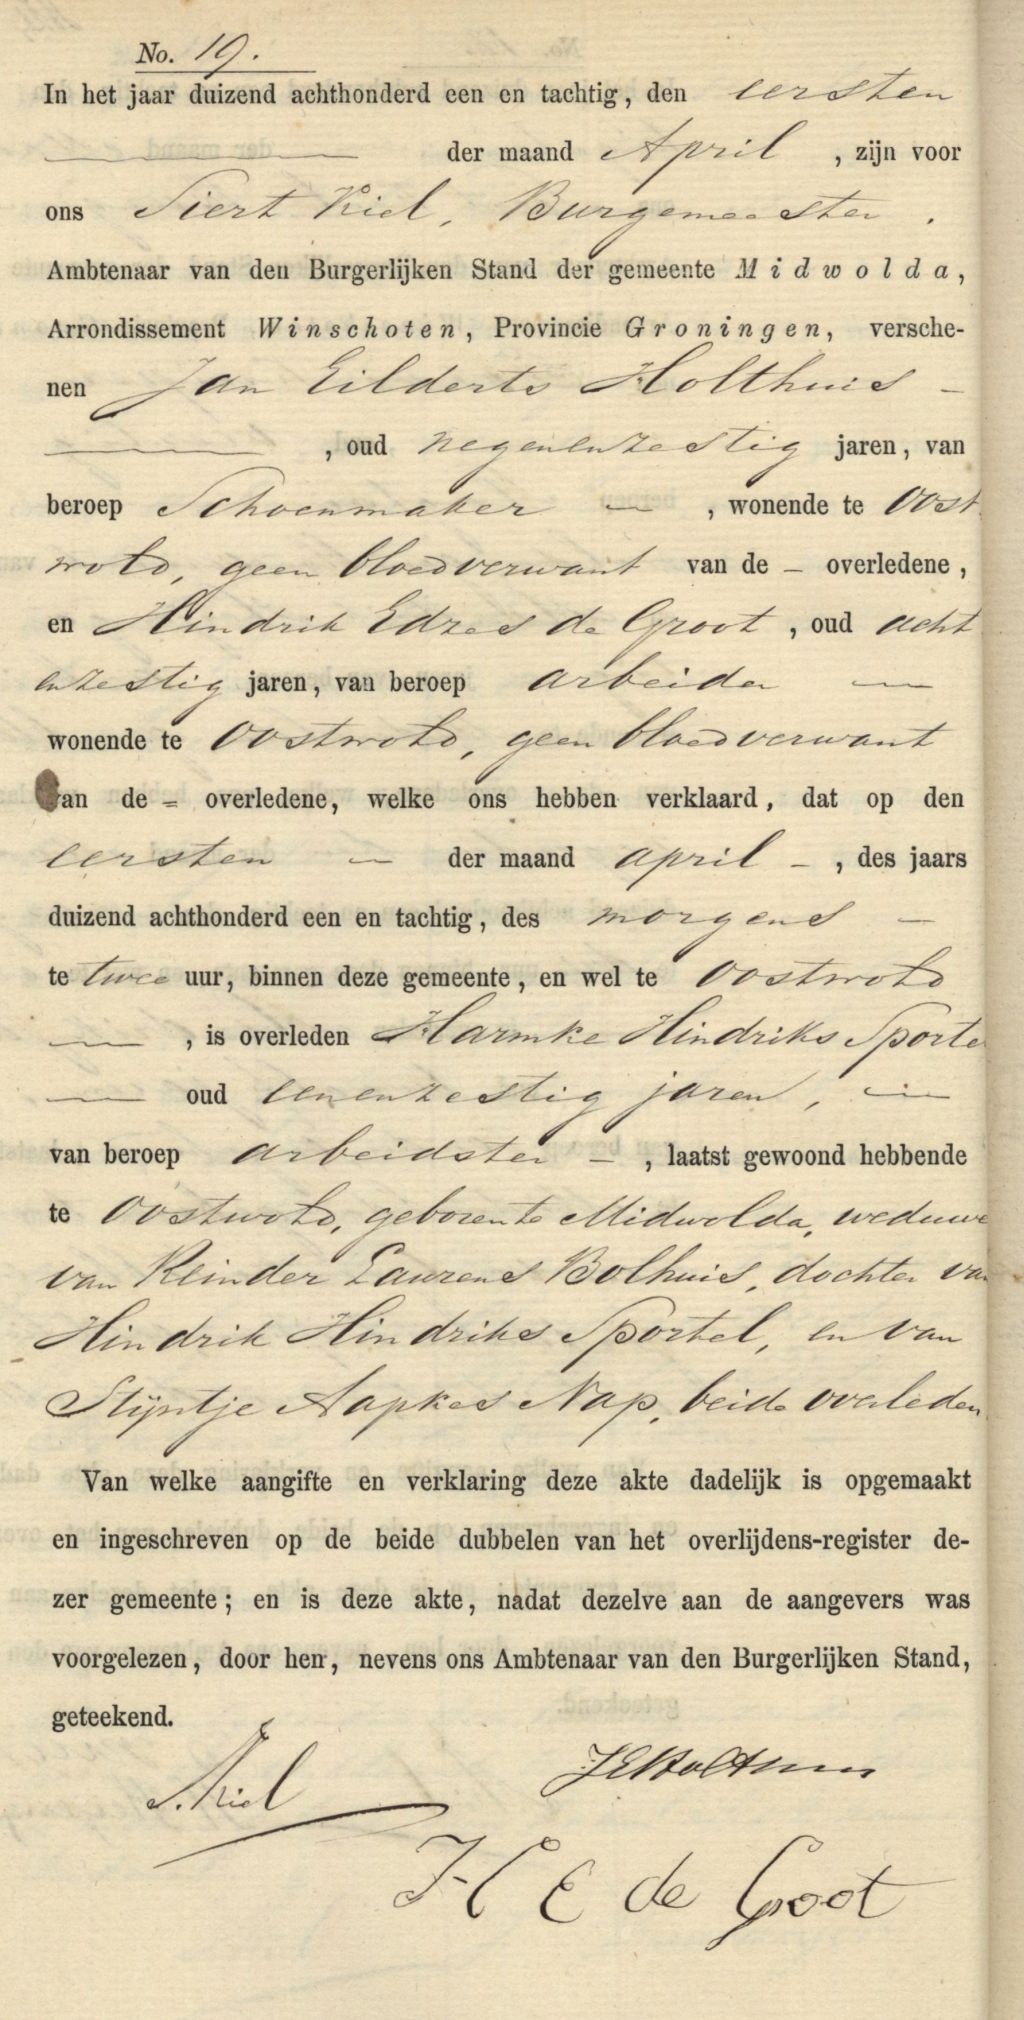 No. 19.
In het jaar duizend achthonderd een en tachtig, den eersten
der maand April, zijn voor
ons Siert Kiel, Burgemeester.
Ambtenaar van den Burgerlijken Stand der gemeente Midwolda,
Arrondissement Winschoten, Provincie Groningen, versche-
nen Jan Eilderts Holthuis –
, oud negenenzestig jaren, van
beroep Schoenmaker –, wonende te Oost
wold, geen bloedverwant van de – overledene,
en Hindrik Edzes de Groot, oud acht
enzestig jaren, van beroep arbeider –
wonende te Oostwold, geen bloedverwant
van de = overledene, welke ons hebben verklaard, dat op den
eersten – der maand april –, des jaars
duizend achthonderd een en tachtig, des morgens –
te twee uur, binnen deze gemeente, en wel te Oostwold
–, is overleden Harmke Hindriks Sporte
– oud eenenzestig jaren, –
van beroep arbeidster –, laatst gewoond hebbende
te Oostwold, geboren te Midwolda, weduwe
van Reinder Laurens Bolhuis, dochter van
Hindrik Hindriks Sportel, en van
Stijntje Aapkes Nap, beide overleden
Van welke aangifte en verklaring deze akte dadelijk is opgemaakt
en ingeschreven op de beide dubbelen van het overlijdens-register de-
zer gemeente; en is deze akte, nadat dezelve aan de aangevers was
voorgelezen, door hen, nevens ons Ambtenaar van den Burgerlijken Stand,
geteekend.
S. Kiel JEHolthuis
H E de Groot